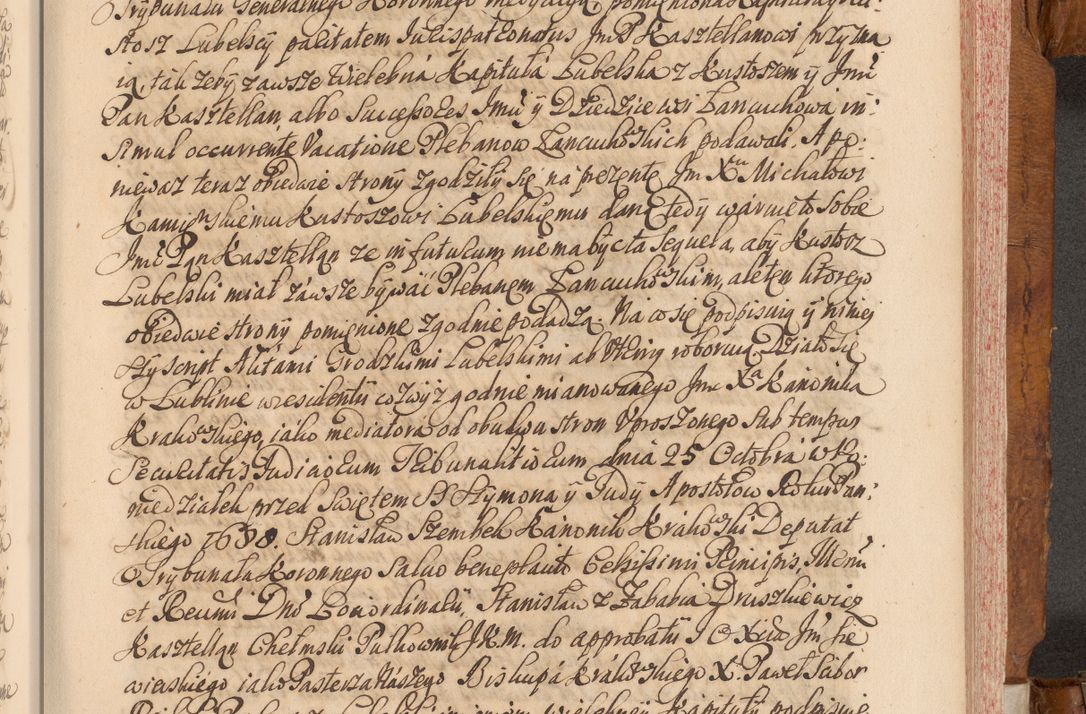 Trybunału Generalnego Koronnego
stosz Lubelscy paritatem Iurispatronatus Jm P Kasztellanowi przyzna
ią, tak żeby zawsze Wielebna Kapituła Lubelska z Kustoszem ÿ Jmć
Pan Kasztellan, albo Sucessores Jmći ÿ Dziedzice wsi Łancuchowa in
simul occurrente Vacatione Plebanow Łancuchowskich podawali. A po:
nieważ teraz obiedwie stronÿ zgodziłÿ się na prezentę Jm Xu Michałowi
Kustoszowi Lubelskiemu daną, tedÿ waruie to sobie
Jmć Pan Kasztellan ze in futurum nie ma być ta sequela, abÿ Kustosz
Lubelski miał zawsze bÿwać Plebanem Łancuchowskim, ale ten ktorego
obiedwie stronÿ pomienione zgodnie podadzą. Na co się podpisuią ÿ ninieÿ
szÿ script Aktami Grodzkimi Lubelskimi roboruią. Działo się
w Lublinie w residentii zgodnie mianowanego Jmc Xa Kanonika
Krakowskiego, iako mediatora od obudwu stron Vproszonego sub tempus
Securitatis Iudiciorum Tribunalitiorum dnia 25 Octobra w Po:
niedziałek przed Swiętem SS Szymona ÿ Judÿ Apostołow Roku Pan:
skiego Stanisław Szembek Kanonik Krakowski Deputat
Trÿbunału Koronnego salvo beneplacito Celsissimi Principis,
et Reumi Dni Loci ordinarii, Stanisław z Zababia Druszkiewicz
Kasztellan Chełmski Pułkownik J.K.M. do approbatii
wierskiego iako Pasterza Naszego Biskupa Krakowskiego X. Paweł
Kapitułÿ podpisuię